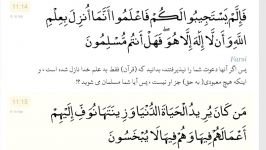 11:14
فَإِلَّمْ يَسْتَجِيبُوا لَكُمْ فَاعْلَمُوا أَنَّمَا أُنزِلَ بِعِلْمِ
اللَّهِ وَأَن لَّا إِلَٰهَ إِلَّا هُوَ ۖ فَهَلْ أَنتُم مُّسْلِمُونَ
Farsi
پس اگر آنها دعوت شما را نپذیرفتند، بدانید که (قرآن) فقط به علم خدا نازل شده است، و
اینکه هیچ معبودی( به حق) جز او نیست، پس آیا شما مسلمان می شوید ؟!
11:15
مَن كَانَ يُرِيدُ الْحَيَاةَ الدُّنْيَا وَزِينَتَهَا نُوَفِّ إِلَيْهِمْ
أَعْمَالَهُمْ فِيهَا وَهُمْ فِيهَا لَا يُبْخَسُونَ